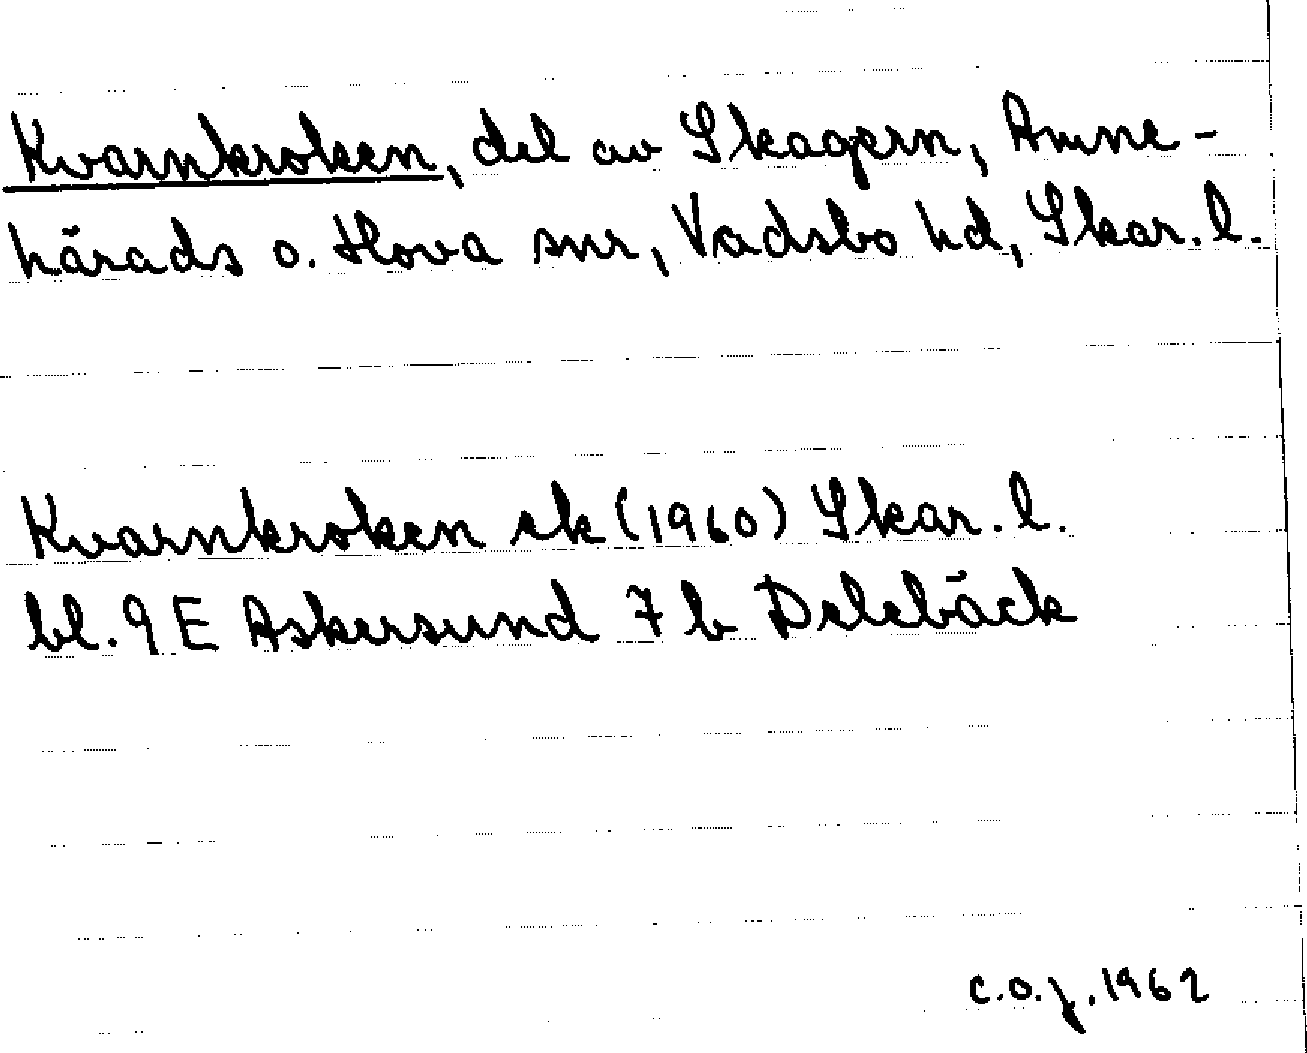 Kvarnkroken, del av Skagern, Amne-
härads o. Hova snr, Vadsbo hd, Skar. l.
Kvarnkroken ek (1960) Skar. l.
bl. 9 E Askersund 7 b Delebäck
C.O.J. 1962